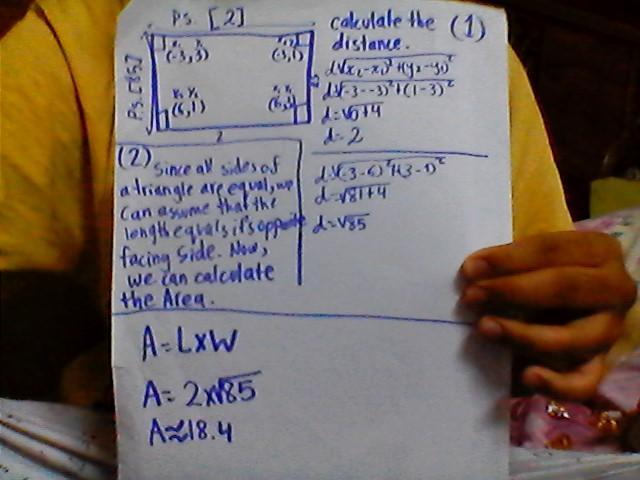 Ps. [2]
Ps. [√85]
x₁ y₁
(-3,3)
(-3,1)
x₁ y₁
(6,1)
(6,3)
2
calculate the (1)
distance.
d=√(x₂-x₁)²+(y₂-y₁)²
d=√(-3--3)²+(1-3)²
d=√0+4
d=2
d=√(-3-6)²+(3-1)²
d=√81+4
d=√85
(2) Since all sides of
a triangle are equal, we
can assume that the
length equals it's opposite
facing side. Now,
we can calculate
the Area.
A=LxW
A=2x√85
A≈18.4